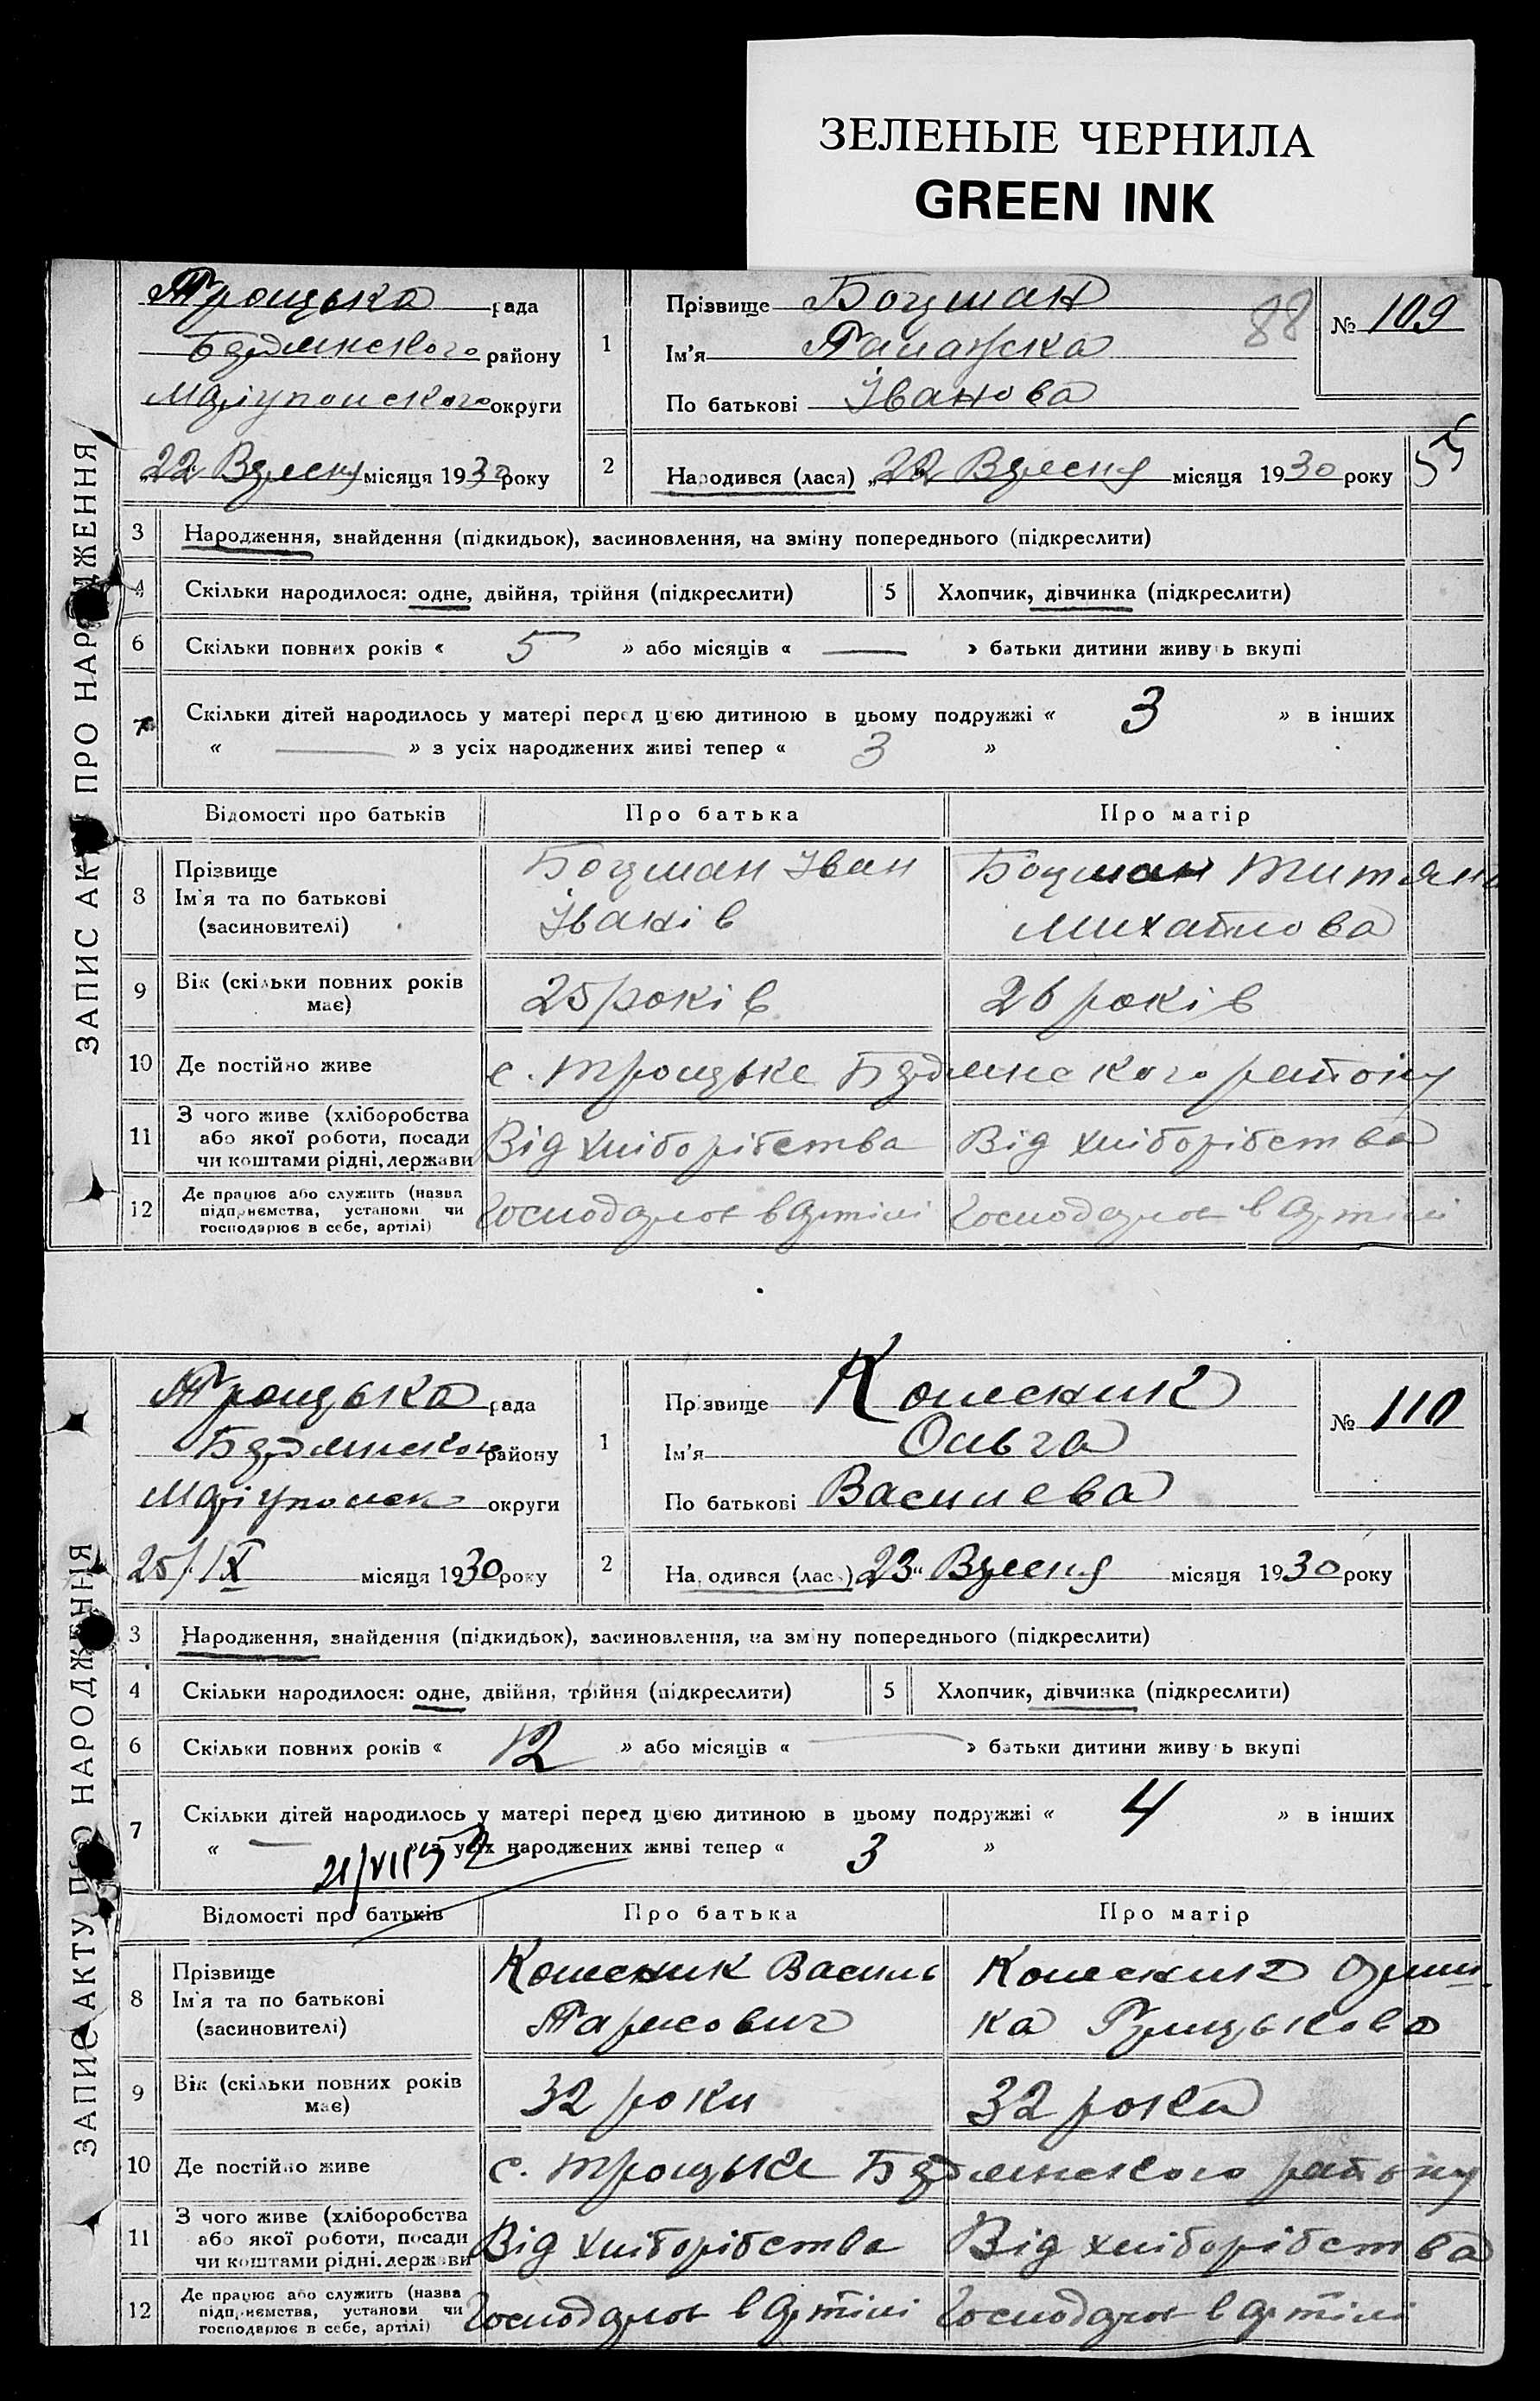 ЗЕЛЕНЫЕ ЧЕРНИЛА
GREEN INK
ЗАПИС АКТУ ПРО НАРОДЖЕННЯ
Троцька рада
Бердянського району
Маріупольского округи
22 Вересня місяця 1930 року
1
Прізвище Боцман
Ім'я Палажка
По батькові Іванова
88
№ 109
2
Народився (лася) „22 Вересня місяця 1930 року
55
3 Народження, знайдення (підкидьок), засиновлення, на зміну попереднього (підкреслити)
4 Скільки народилося: одне, двійня, трійня (підкреслити) 5 Хлопчик, дівчинка (підкреслити)
6 Скільки повних років « 5 » або місяців « — » батьки дитини живуть вкупі
7 Скільки дітей народилось у матері перед цією дитиною в цьому подружжі « 3 » в інших
« — » з усіх народжених живі тепер « 3 »
Відомості про батьків Про батька Про матір
8 Прізвище Ім'я та по батькові (засиновителі)
Боцман Іван Іванів
Боцман Титяна Михайлова
9 Вік (скільки повних років має) 25 років 26 років
10 Де постійно живе с. Троцьке Бердянского району
11 З чого живе (хліборобства або якої роботи, посади чи коштами рідні, держави Від хліборібства Від хліборібства
12 Де працює або служить (назва підприємства, установи чи господарює в себе, артілі) Господарює в артілі Господарює в артілі
ЗАПИС АКТУ ПРО НАРОДЖЕННЯ
Троцька рада
Бердянского району
Маріупольск округи
25/IX місяця 1930 року
1
Прізвище Колесник
Ім'я Ольга
По батькові Василева
№ 110
2
Народився (лася) „23" Вересня місяця 1930 року
3 Народження, знайдення (підкидьок), засиновлення, на зміну попереднього (підкреслити)
4 Скільки народилося: одне, двійня, трійня (підкреслити) 5 Хлопчик, дівчинка (підкреслити)
6 Скільки повних років « 12 » або місяців « — » батьки дитини живуть вкупі
7 Скільки дітей народилось у матері перед цією дитиною в цьому подружжі « 4 » в інших
« — » з усіх народжених живі тепер « 3 »
21/VII 52
Відомості про батьків Про батька Про матір
8 Прізвище Ім'я та по батькові (засиновителі)
Колесник Василь Тарасович
Колесник Орише- ка Грицькова
9 Вік (скільки повних років має) 32 роки 32 роки
10 Де постійно живе с. Троцьке Бердянского району
11 З чого живе (хліборобства або якої роботи, посади чи коштами рідні, держави Від хліборібства Від хліборібства
12 Де працює або служить (назва підприємства, установи чи господарює в себе, артілі) Господарює в артілі Господарює в артілі